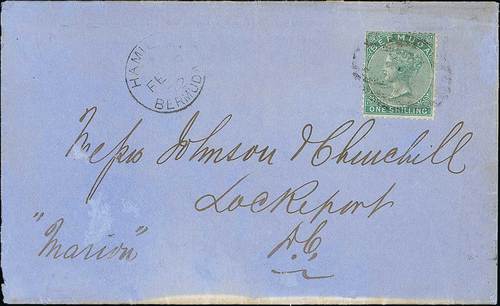 HAMI
FE
BERMUDA
BERMUDA
ONE SHILLING
Messrs Johnson & Churchill
Lockeport
"Marion"